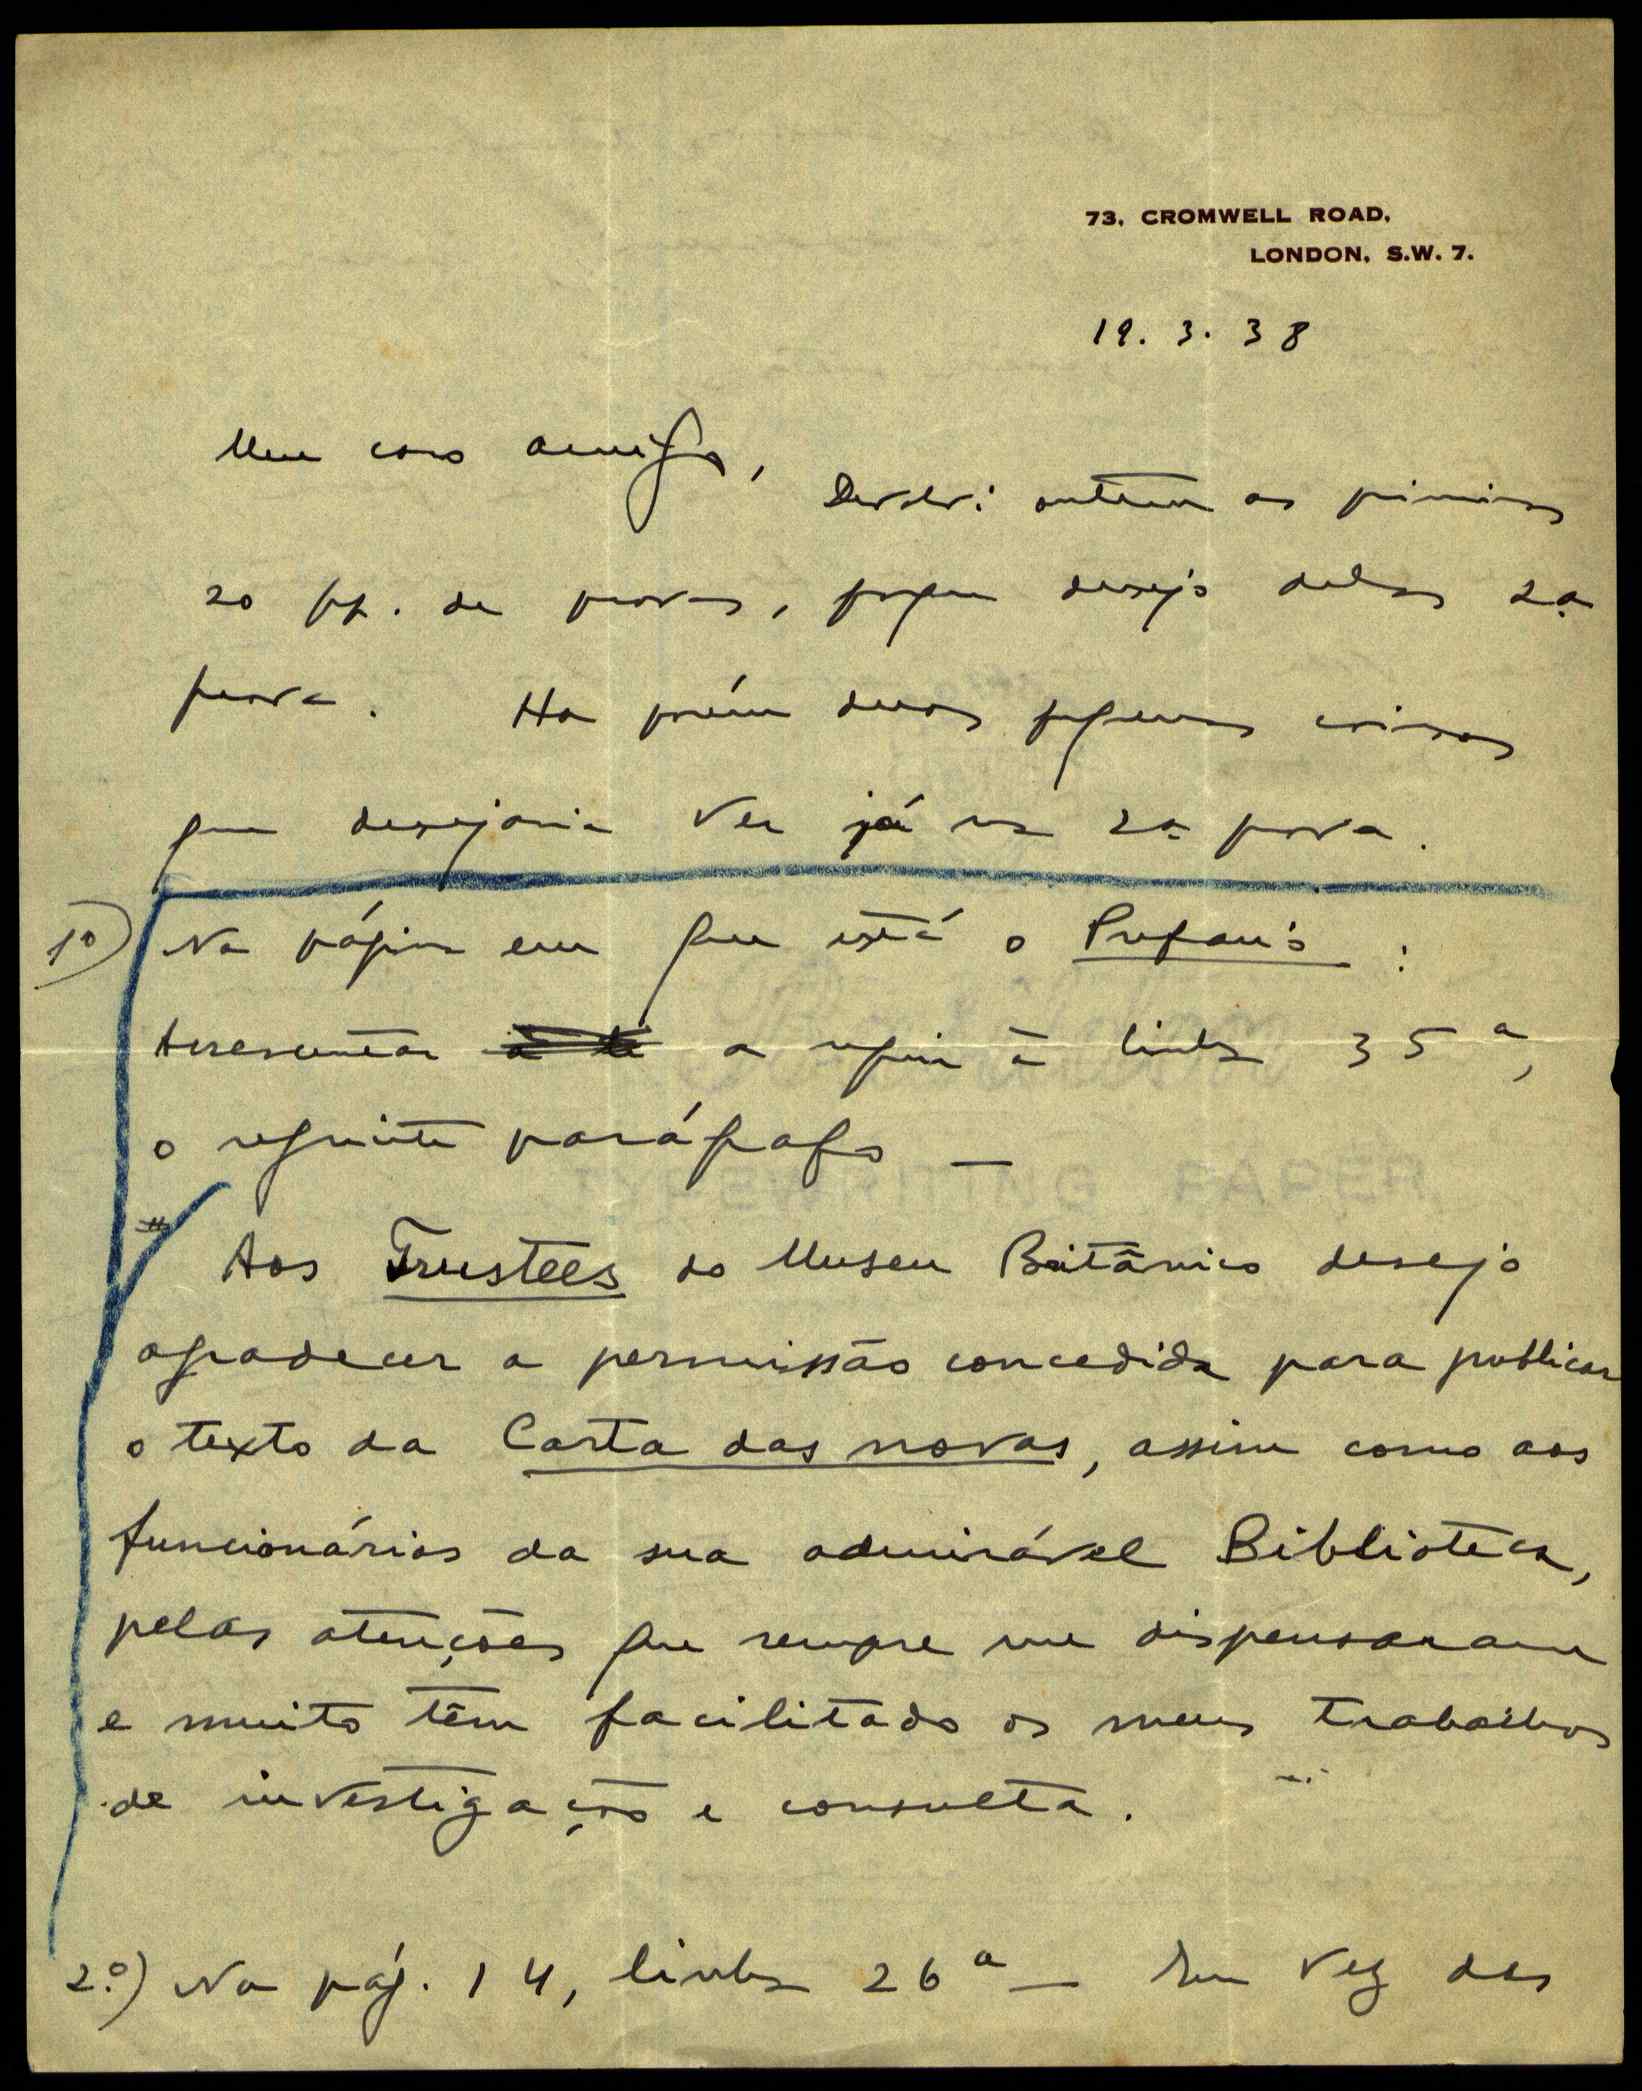 73, CROMWELL ROAD,
LONDON, S.W. 7.
19. 3. 38
Meu caro amigo,
Devolvi ontem as primeiras
20 pp. de provas, porque desejo delas 2.a
prova. Ha porém duas pequenas coisas
que desejaria ver já na 2.a prova.
1º) Na página em que está o Prefácio :
Acrescentar a seguir à linha 35ª,
o seguinte parágrafo —
Aos Trustees do Museu Britânico desejo
agradecer a permissão concedida para publicar
o texto da Carta das novas, assim como aos
funcionários da sua admirável Biblioteca,
pelas atenções que sempre me dispensaram
e muito têm facilitado os meus trabalhos
de investigação e consulta.
2.º) Na pág. 14, linha 26ª — Em vez das